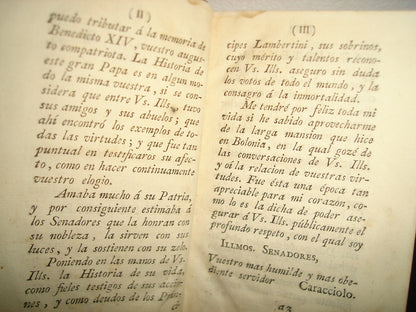 ( II )
puedo tributar á la memoria de
Benedicto XIV, vuestro augus-
to compatriota. La Historia de
este gran Papa es en algun mo-
do la misma vuestra, si se con-
sidera que entre Vs. Ills. tuvo
sus amigos y sus abuelos; que
ahí encontró los exemplos de to-
das las virtudes; y que fue tan
puntual en testificaros su afec-
to, como en hacer continuamente
vuestro elogio.
Amaba mucho á su Patria,
y por consiguiente estimaba á
los Senadores que la honran con
su nobleza, la sirven con sus
luces, y la sostienen con su zelo.
Poniendo en las manos de Vs.
Ills. la Historia de su vida,
como fieles testigos de sus accio-
nes, y como deudos de los Prín-
( III )
cipes Lambertini, sus sobrinos,
cuyo mérito y talentos recono-
cen Vs. Ills. aseguro sin duda
los votos de todo el mundo, y la
consagro á la inmortalidad.
Me tendré por feliz toda mi
vida si he sabido aprovecharme
de la larga mansion que hice
en Bolonia, en la qual gozé de
las conversaciones de Vs. Ills.
y oí la relacion de vuestras vir-
tudes. Fue ésta una época tan
apreciable para mi corazon, co-
mo lo es la dicha de poder ase-
gurar á Vs. Ills. públicamente el
profundo respeto, con el qual soy
ILLMOS. SENADORES,
Vuestro mas humilde y mas obe-
diente servidor
Caracciolo.
a2